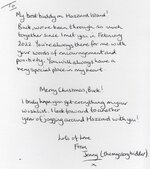 My best buddy on Hazzard Island!
Buck, we've been through so much
together since I met you in February
2022. You're always there for me with
your words of encouragement and
positivity. You will always have a
very special place in my heart.
Merry Christmas, Buck!
I truly hope you get everything on your
wishlist. I look forward to another
year of jogging around Hazzard with you!
Lots of love
From
Jenny (the mystery builder)
x